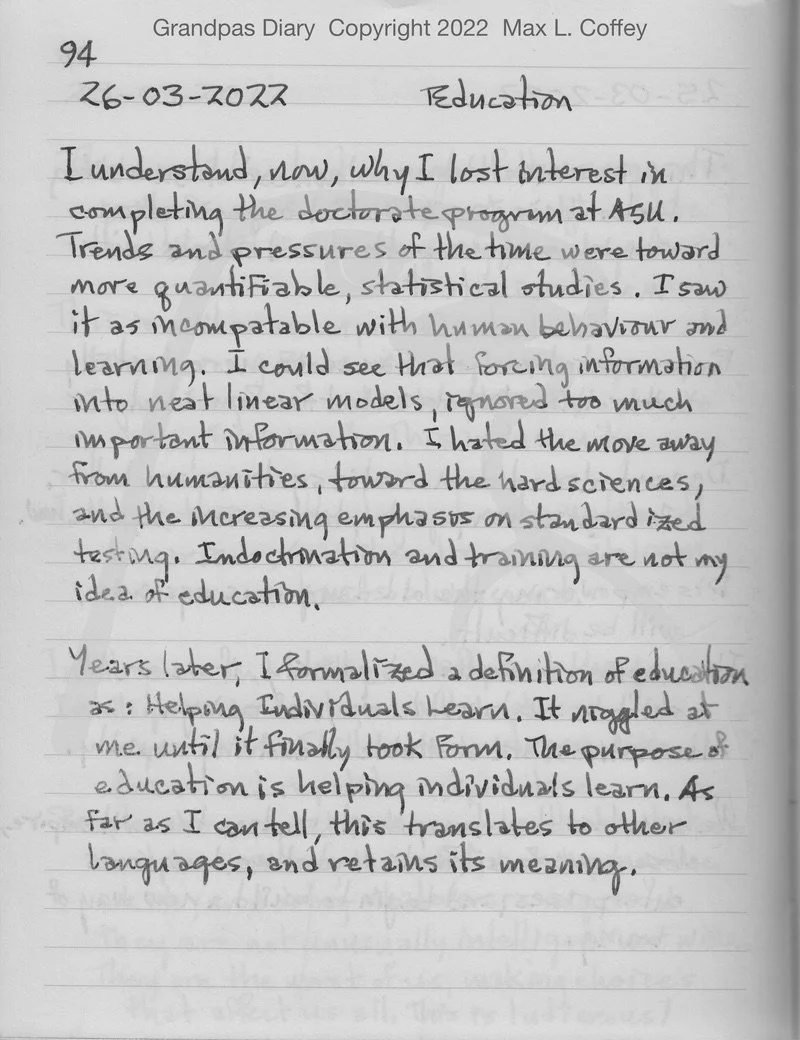 Grandpas Diary Copyright 2022 Max L. Coffey
94
26-03-2022 Education
I understand, now, why I lost interest in
completing the doctorate program at ASU.
Trends and pressures of the time were toward
more quantifiable, statistical studies. I saw
it as incompatable with human behaviour and
learning. I could see that forcing information
into neat linear models, ignored too much
important information. I hated the move away
from humanities, toward the hard sciences,
and the increasing emphasis on standardized
testing. Indoctrination and training are not my
idea of education.
Years later, I formalized a definition of education
as: Helping Individuals Learn. It niggled at
me until it finally took form. The purpose of
education is helping individuals learn. As
far as I can tell, this translates to other
languages, and retains its meaning.